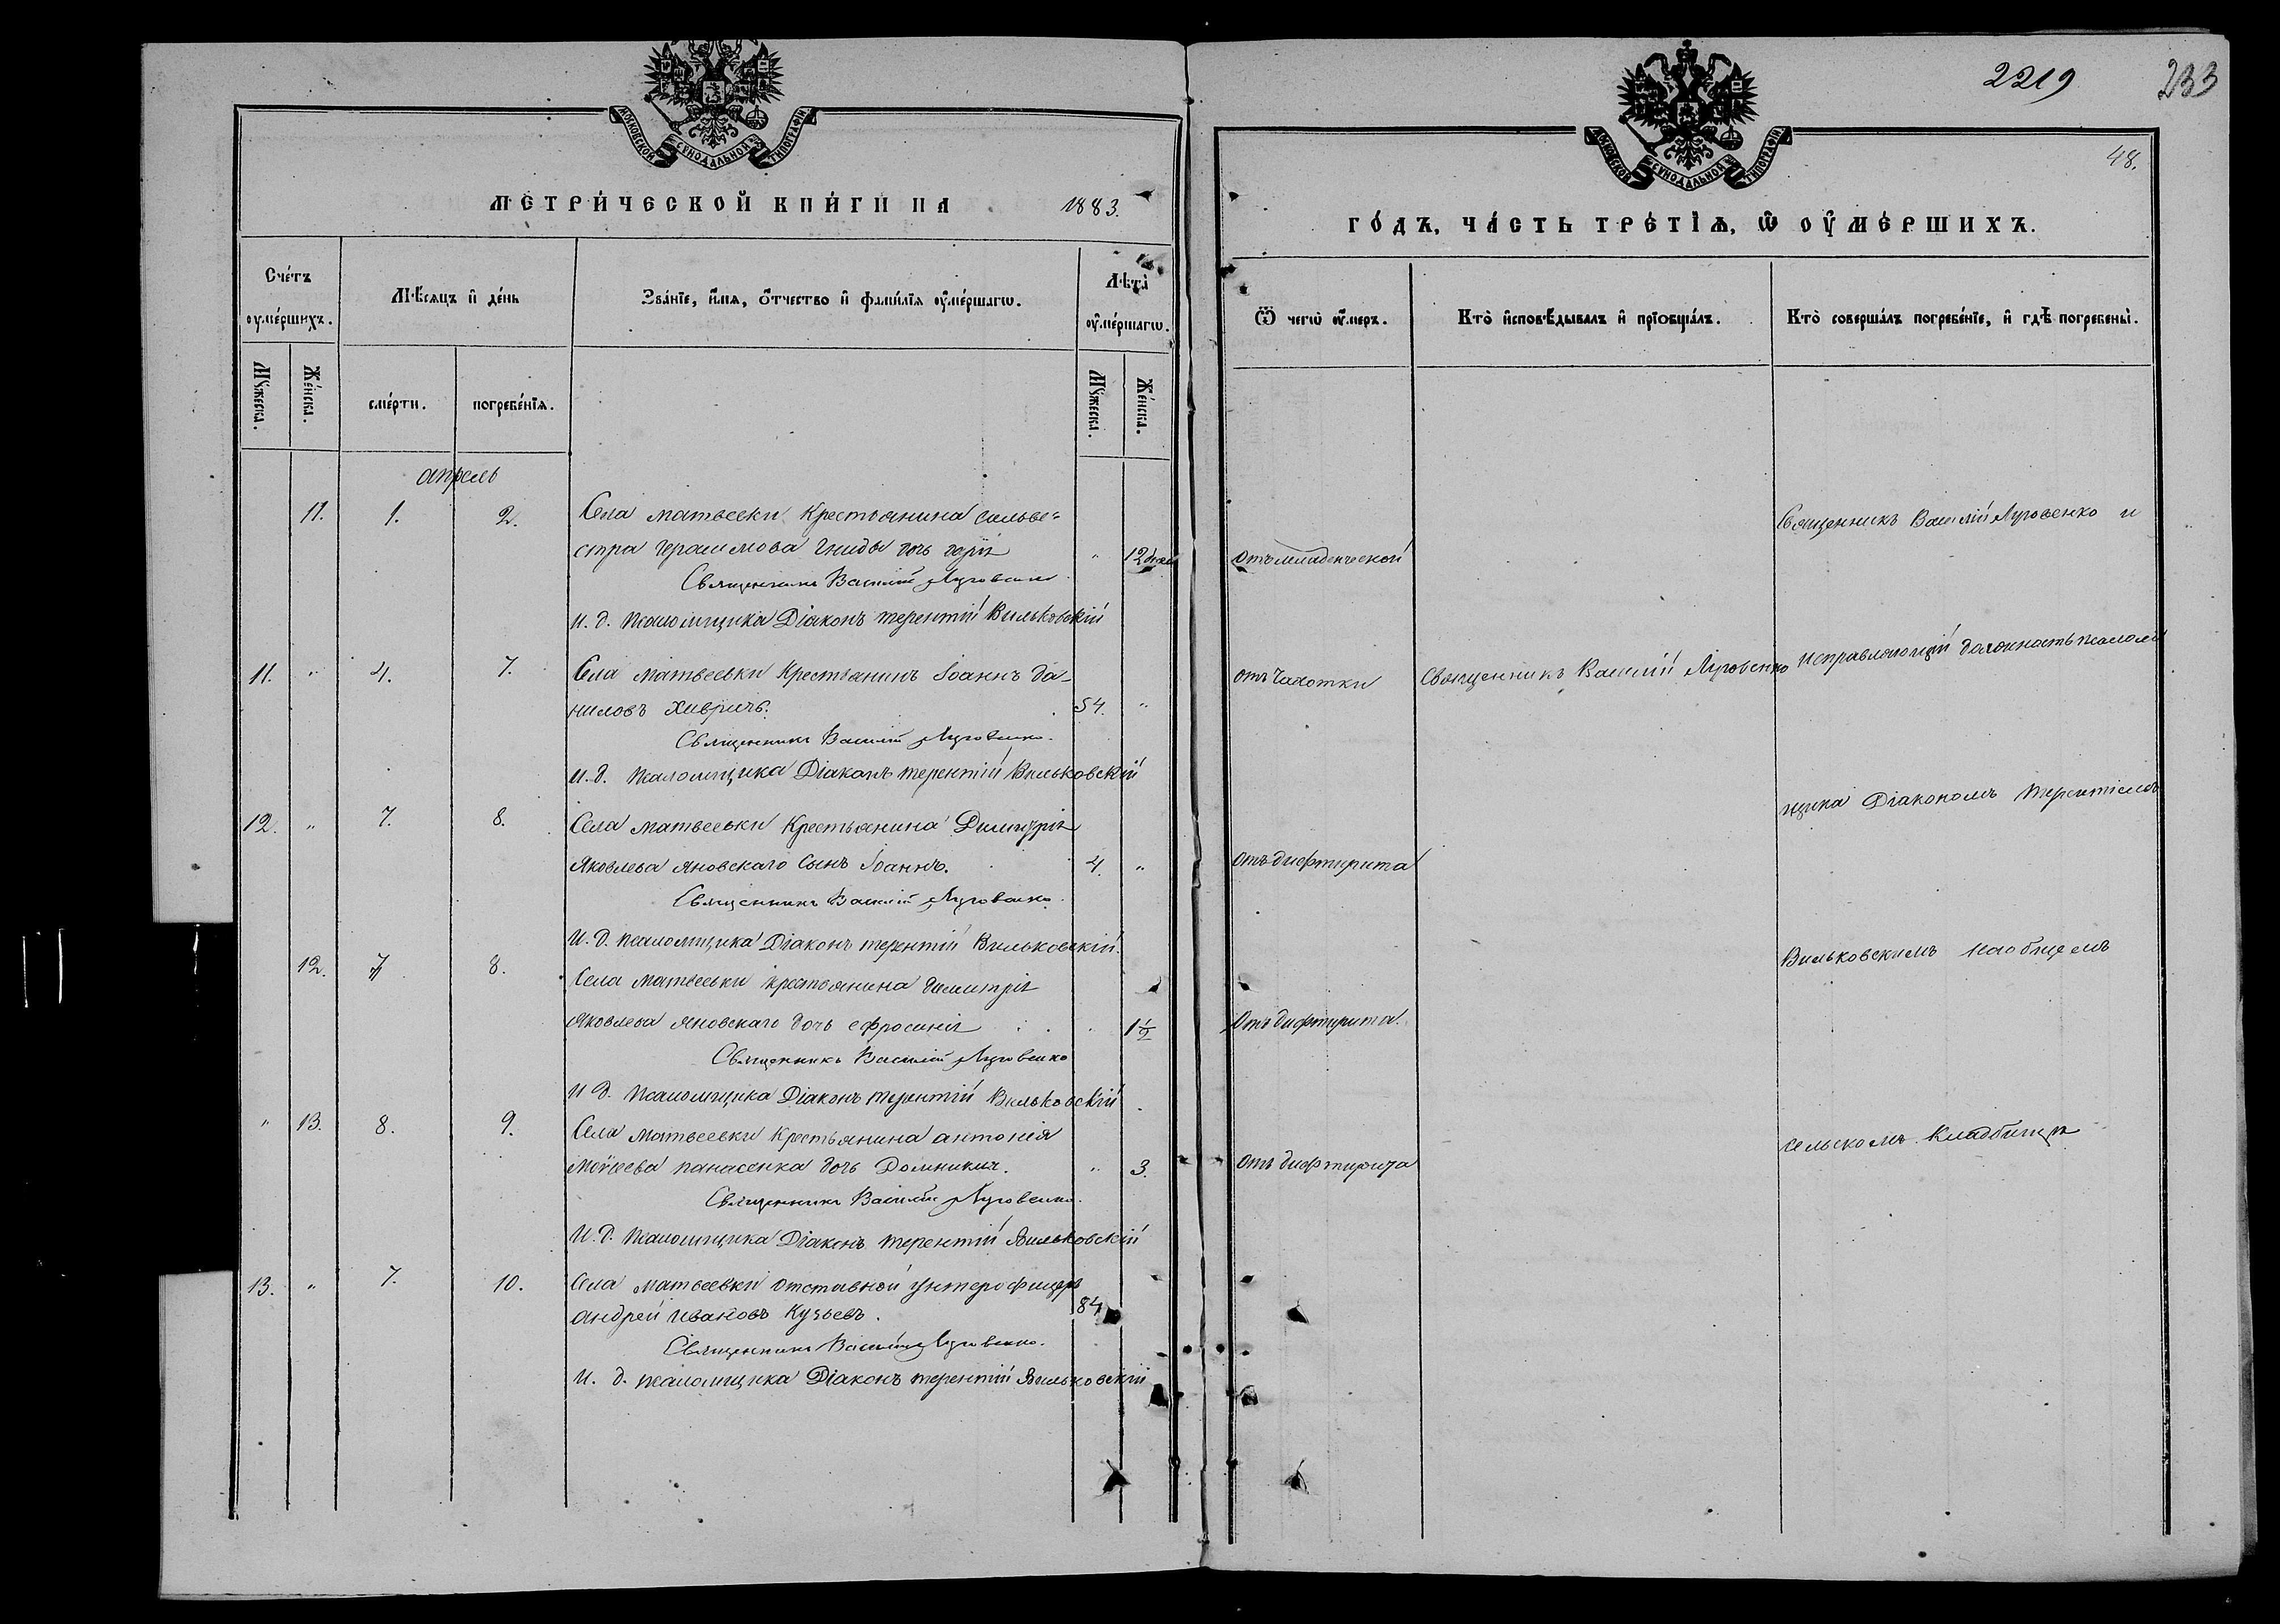 МОСКОВСКОЙ СУНОДАЛЬНОЙ ТИПОГРАФІИ
МЕТРИ́ЧЕСКОЙ КНИ́ГИ НА 1883.
Сче́тъ оумéршихъ.
Мѣ́сяцъ и҆ де́нь
Зва́нїе, и҆́мя, ѻ҆́тчество и҆ фами́лїя оу҆ме́ршагѡ.
Лѣта̀ оу҆ме́ршагѡ.
Мꙋ́жеска.
Же́нска.
сме́рти.
погребе́нїя.
Мꙋ́жеска.
Же́нска.
апрель
11. 1. 2. Села Матвеевки Крестьянина Сильве=
стра Герасимова Гниды дочь " 12 дней
Священникъ Василій Луговенко
И. д. Псаломщика Діаконъ Терентій Вильковскій
11. " 4. 7. Села Матвеевки Крестьянинъ Іоаннъ Да-
ниловъ Хивричъ. 54. "
Священникъ Василій Луговенко.
И. д. Псаломщика Діаконъ Терентій Вильковскій
12. " 7. 8. Села Матвеевки Крестьянина Димитрія
Яковлева Яновскаго Сынъ Іоаннъ. 4. "
Священникъ Василій Луговенко
И. д. псаломщика Діаконъ Терентій Вильковскій.
12. 7 8. Села Матвеевки крестьянина Димитрія
Яковлева Яновскаго дочь Ефросинія 1 1/2
Священникъ Василій Луговенко
И д. Псаломщика Діаконъ Терентій Вильковскій
" 13. 8. 9. Села Матвеевки Крестьянина Антонія
Моѵсеева Панасенка дочь Домникия. " 3.
Священникъ Василій Луговенко.
И. д. Псаломщика Діаконъ Терентій Вильковскій
13. " 7. 10. Села Матвеевки отставной Унтерофицеръ
Андрей Ивановъ 84
Священникъ Василій Луговенко.
И. д. псаломщика Діаконъ Терентій Вильковскій
2219 233
48.
МОСКОВСКОЙ СУНОДАЛЬНОЙ ТИПОГРАФІИ
ГО́ДЪ, ЧА́СТЬ ТРЕ́ТІѦ, Ѡ҆ ОУ҆МЕ́РШИХЪ.
Ѿ чегѡ̀ оу҆́меръ.
Кто̀ и҆сповѣ́дывалъ и҆ прїѡбща́лъ.
Кто̀ соверша́лъ погребе́нїе, и҆ гдѣ̀ погребены̀.
Священникъ Василій Луговенко и
отъ младенческой
отъ чахотки Священникъ Василій Луговенко Исправляющій должность псалом
щика Діакономъ Терентіемъ
отъ дифтирита
Вильковскимъ на общемъ
Отъ дифтирита.
сельскомъ кладбищѣ
отъ дифтирита